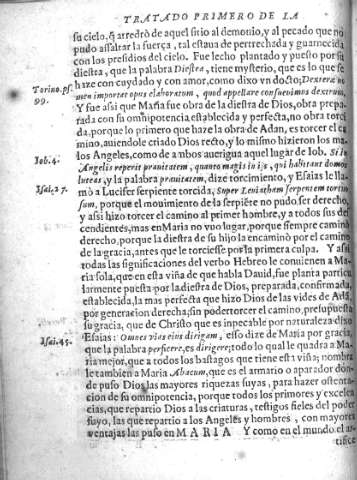 TRATADO PRIMERO DE LA
su cielo, q̃ arredrò de aquel sitio al demonio, y al pecado que no
pudo assaltar la fuerça, tal estaua de pertrechada y guarnecida
con los presidios del cielo. Fue lecho plantado y puesto por su
diestra, que la palabra Diestra, tiene mysterio, que es lo que se
haze con cuydado y con amor, como dixo vn docto; Dextera no
men importat opus elaboratum, quod appellare consueuimos dextrum.
Y fue assi que Maria fue obra de la diestra de Dios, obra prepa
rada con su omnipotencia, establecida y perfecta, no obra torci
da, porque lo primero que haze la obra de Adan, es torcer el ca
mino, auiendole criado Dios recto, y lo mismo hizieron los ma
los Angeles, como de ambos auerigua aquel lugar de Iob. Si in
Angelis reperit prauitatem, quanto magis in ijs, qui habitant domos
luteas, y la palabra prauitatem, dize torcimiento, y Esaias le lla
mò a Lucifer serpiente torcida, Super Leuiathan serpentem tortuo
sum, porque el mouimiento de la serpiẽte no pudo ser derecho,
y assi hizo torcer el camino al primer hombre, y a todos sus des
cendientes, mas en Maria no vuo lugar, porque siempre caminò
derecho, porque la diestra de su hijo la encaminò por el camino
de la gracia, antes que le torciesse por la primera culpa. Y assi
todas las significaciones del verbo Hebreo le conuienen a Ma-
ria sola, que en esta viña de que habla Dauid, fue planta particu
larmente puesta por la diestra de Dios, preparada, confirmada,
establecida, la mas perfecta que hizo Dios de las vides de Adã,
por generacion derecha, sin poder torcer el camino, presupuesta
su gracia, que de Christo que es inpecable por naturaleza dixo
Esaias: Omnes vias eius dirigam, esso dize de Maria por gracia,
que la palabra perficere, es dirigere; todo lo qual le quadra a Ma
ria mejor, que a todos los bastagos que tiene esta viña; nombra
le tambien a Maria Abacum, que es el armario o aparador don-
de puso Dios las mayores riquezas suyas, para hazer ostenta-
cion de su omnipotencia, porque todos los primores y excelen
cias, que repartio Dios a las criaturas, testigos fieles del poder
suyo, las que repartio a los Angeles y hombres, con mayores
ventajas las puso en MARIA Y como en el mundo el ar-
tifice
Torino. ps.
99.
Iob. 4.
Isai. 27.
Isai. 45.